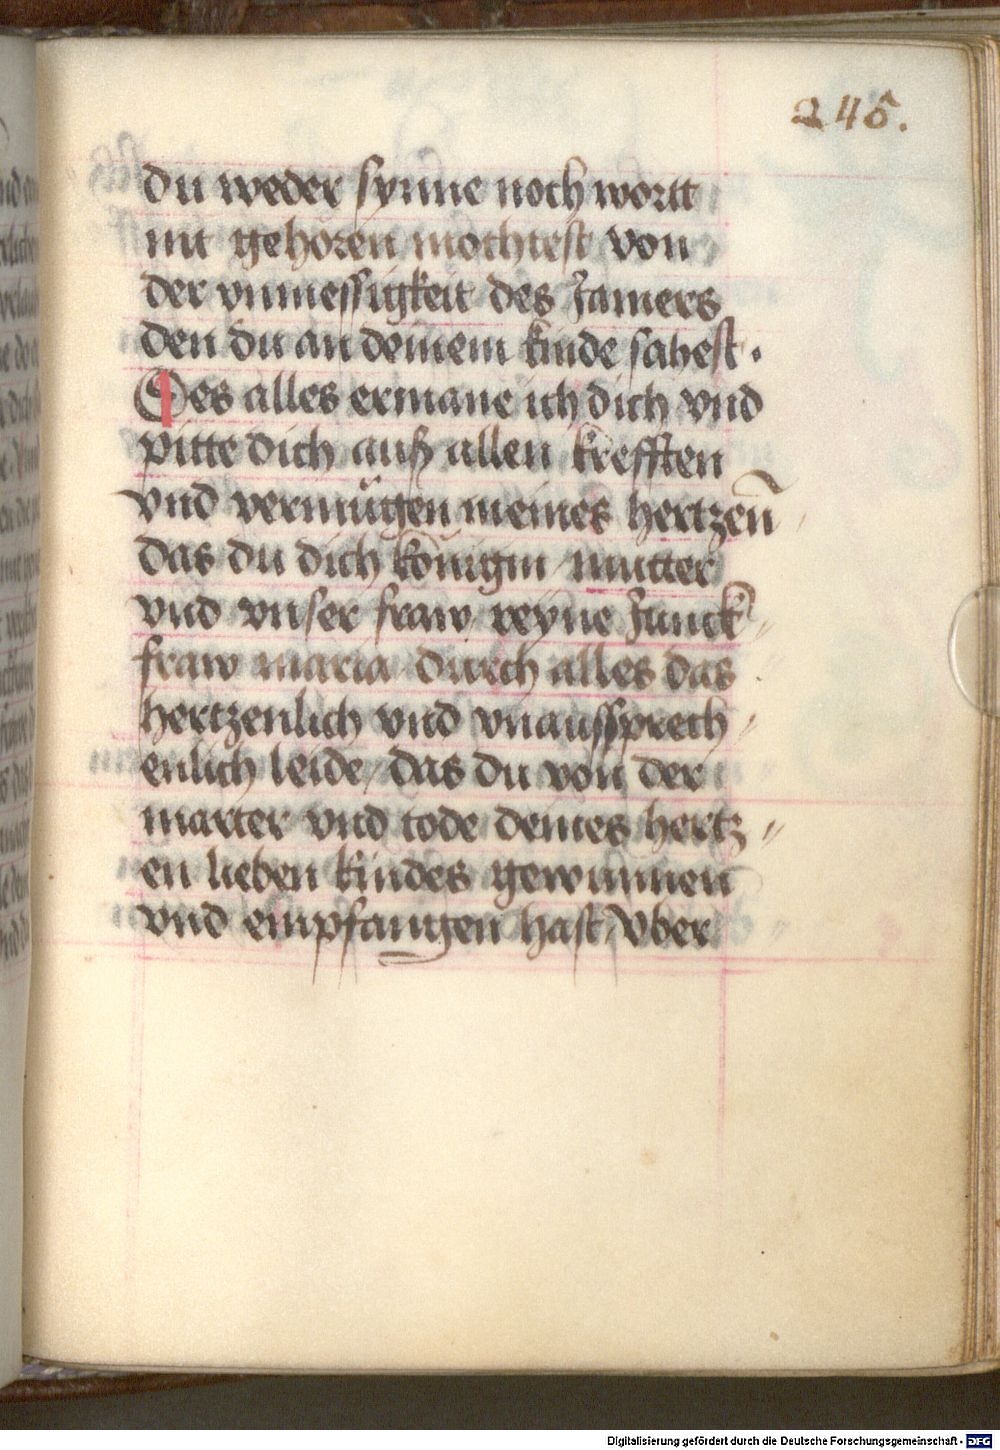 245.
du weder synne noch wortt
nit gehoren mochtest von
der vnmessigkeit des Jamers
den du an deinem kinde sahest .
Des alles ermane ich dich vnd
pitte dich auß allen krefften
vnd vermügen meines hertzen̄
das du dich königin / mutter
vnd vnser fraw reyne Junck //
fraw maria durch alles das
hertzenlich vnd vnaussprech //
enlich leide / das du von der
marter vnd tode deines hertz //
en lieben kindes gewunnen
vnd empfangen hast / Vber
Digitalisierung gefördert durch die Deutsche Forschungsgemeinschaft - DFG